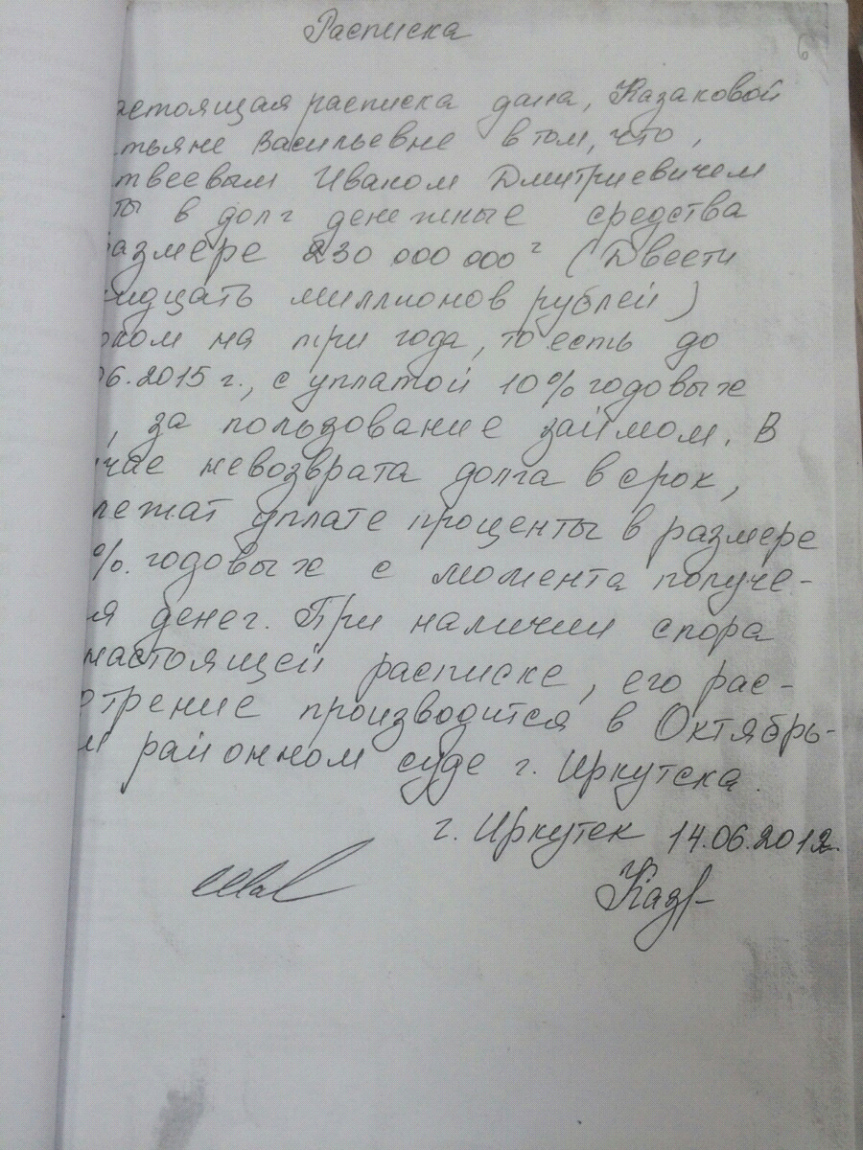 Расписка
астоящая расписка дана, Казаковой
тьяне Васильевне в том, что,
твеевым Иваном Дмитриевичем
ты в долг денежные средства
размере 230 000 000 г (Двести
ридцать миллионов рублей)
оком на три года, то есть до
06.2015 г., с уплатой 10% годовых
, за пользование займом. В
учае невозврата долга в срок,
лежат уплате проценты в размере
%. годовых с момента получе-
ия денег. При наличии спора
настоящей расписке, его рас-
отрение производится в Октябрь-
м районном суде г. Иркутска.
г. Иркутск 14.06.2012.
Каз